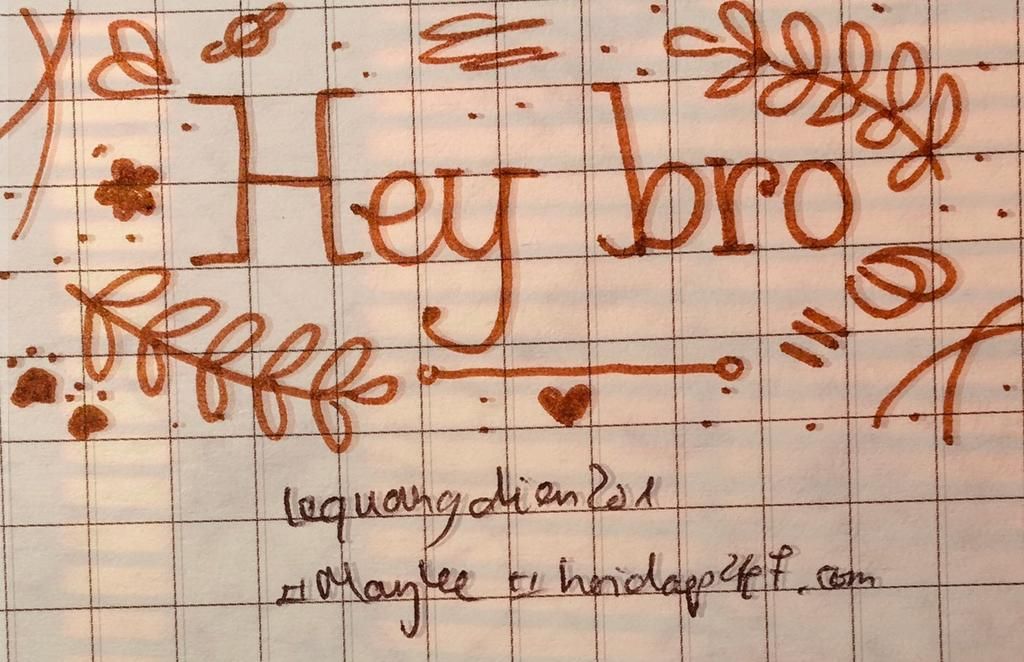 Hey bro
lequangdien201
#Maylee #hoidap247.com